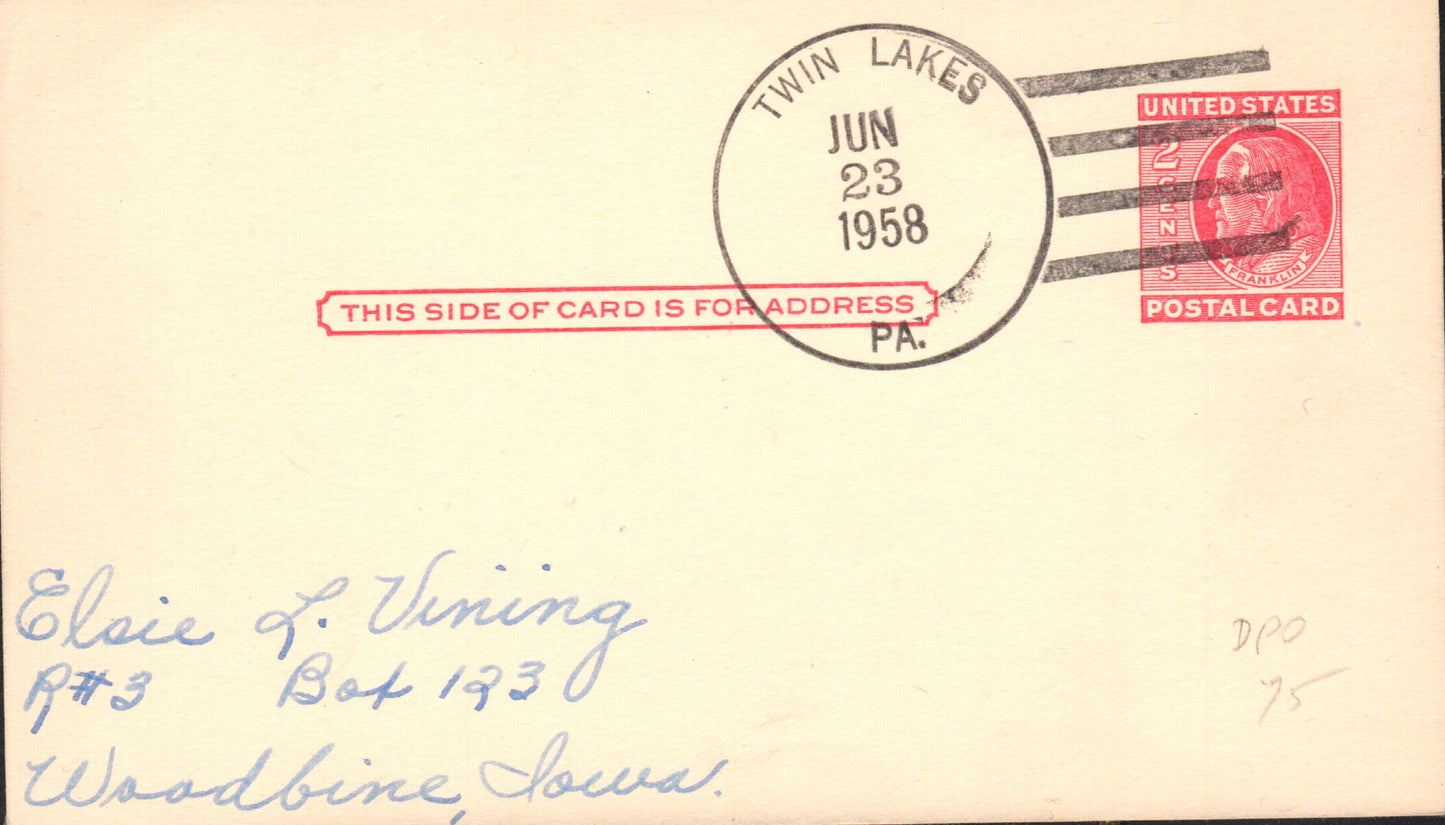 TWIN LAKES
JUN
23
1958
PA.
UNITED STATES
2 CENTS
FRANKLIN
POSTAL CARD
THIS SIDE OF CARD IS FOR ADDRESS
Elsie L. Vining
R#3 Box 123
Woodbine, Iowa.
DPO
75